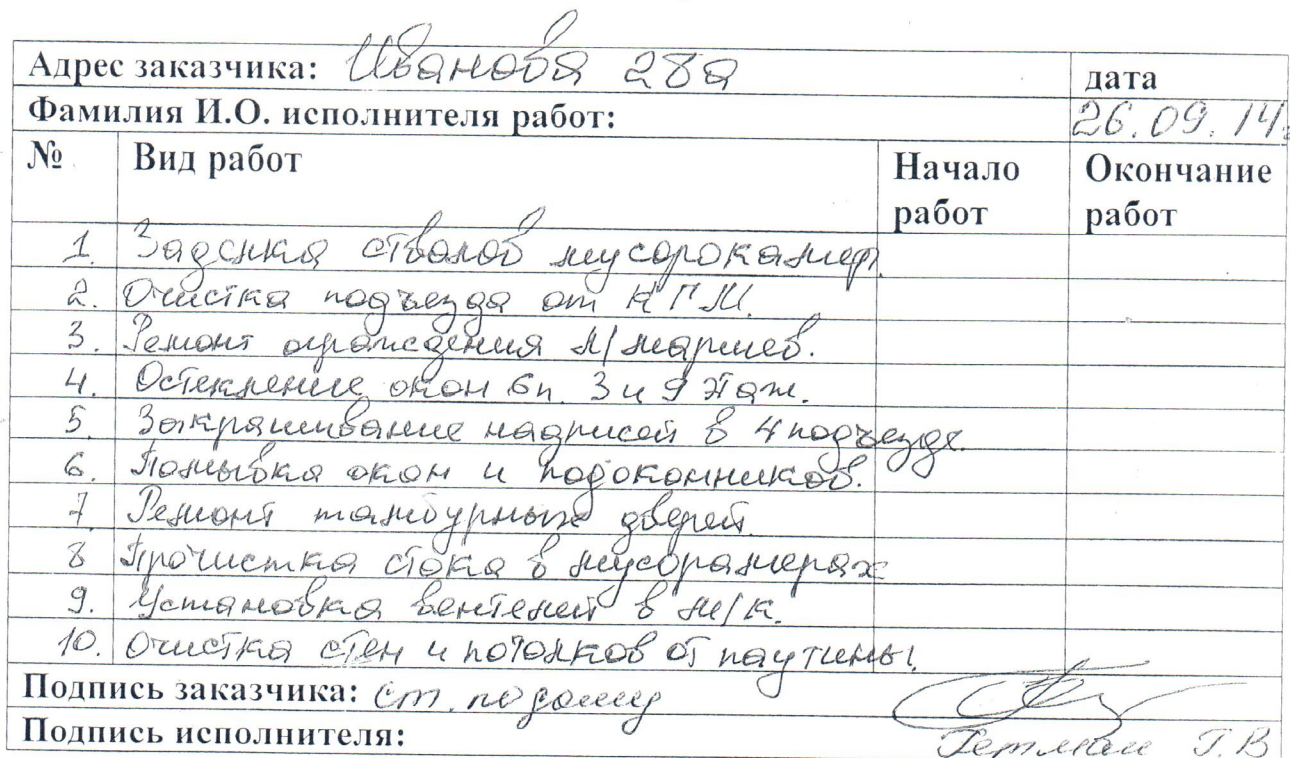 Адрес заказчика: Иванова 28а
дата
Фамилия И.О. исполнителя работ:
26.09.14г
№ Вид работ Начало работ Окончание работ
1. Заделка стволов мусорокамер.
2. Очистка подъезда от КГМ.
3. Ремонт ограждения л/маршев.
4. Остекление окон 6п. 3 и 9 этаж.
5. Закрашивание надписей в 4 подъезде.
6. Помывка окон и подоконников.
7. Ремонт тамбурных дверей.
8 Прочистка стока в мусорамерах
9. Установка вентелей в м/к.
10. Очистка стен и потолков от паутины.
Подпись заказчика: ст. по дому
Подпись исполнителя:
Гетман Г.В